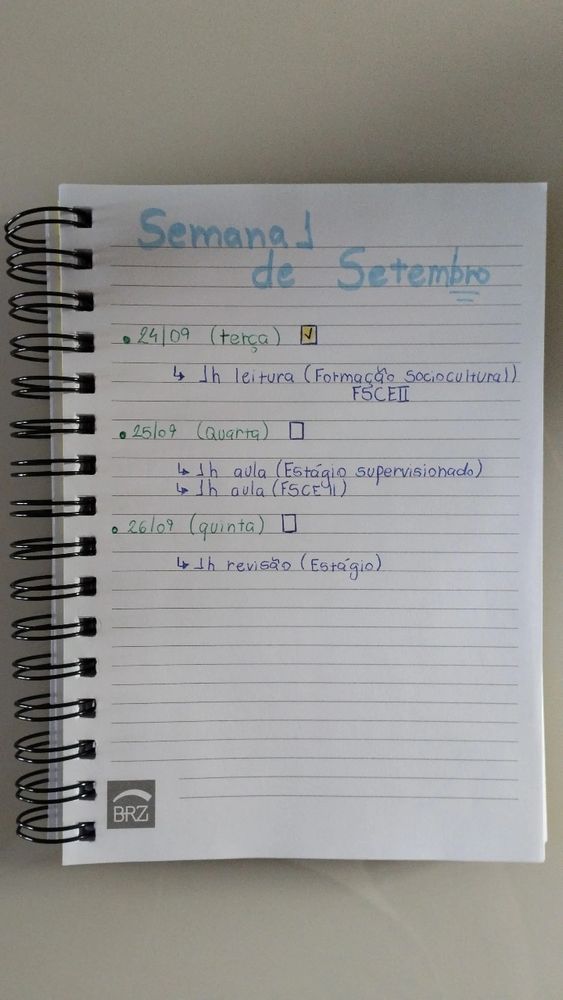 Semana 1
de Setembro
• 24/09 (terça) ☑
↳ 1h leitura (Formação sociocultural)
FSCEII
• 25/09 (Quarta) ☐
↳ 1h aula (Estágio supervisionado)
↳ 1h aula (FSCE II)
• 26/09 (quinta) ☐
↳ 1h revisão (Estágio)
BRZ